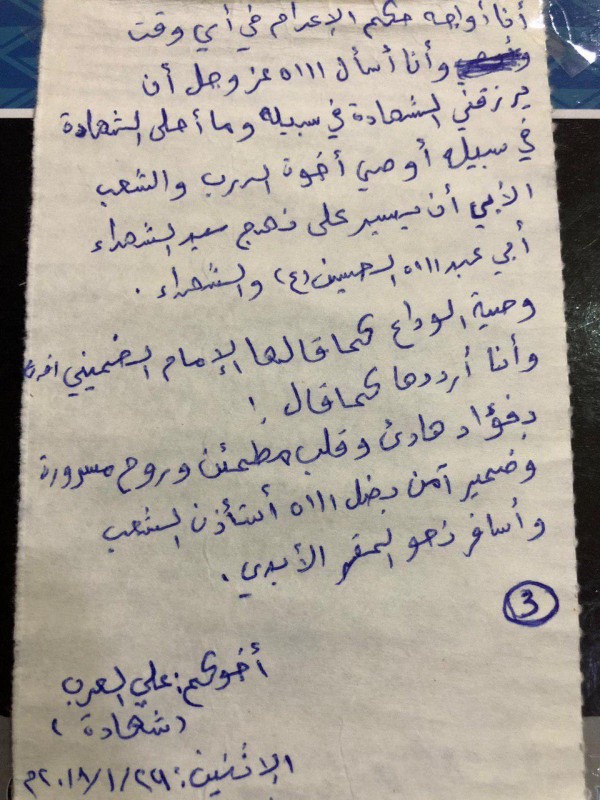 أنا أواجه حكم الإعدام في أي وقت
وأنا أسأل الله عز وجل أن
يرزقني الشهادة في سبيله وما أحلى الشهادة
في سبيله أوصي أخوة الدرب والشعب
الأبي أن يسير على نهج سيد الشهداء
أبي عبدالله الحسين (ع) والشهداء .
وصية الوداع كما قالها الإمام الخميني
وأنا أرددها كما قال !
بفؤاد هادئ وقلب مطمئن وروح مسرورة
وضمير آمن بفضل الله أستأذن الشعب
وأسافر نحو المقر الأبدي .
3
أخوكم: علي العرب
(شهادة)
الإثنين: ٢٠١٨/١/٢٩م